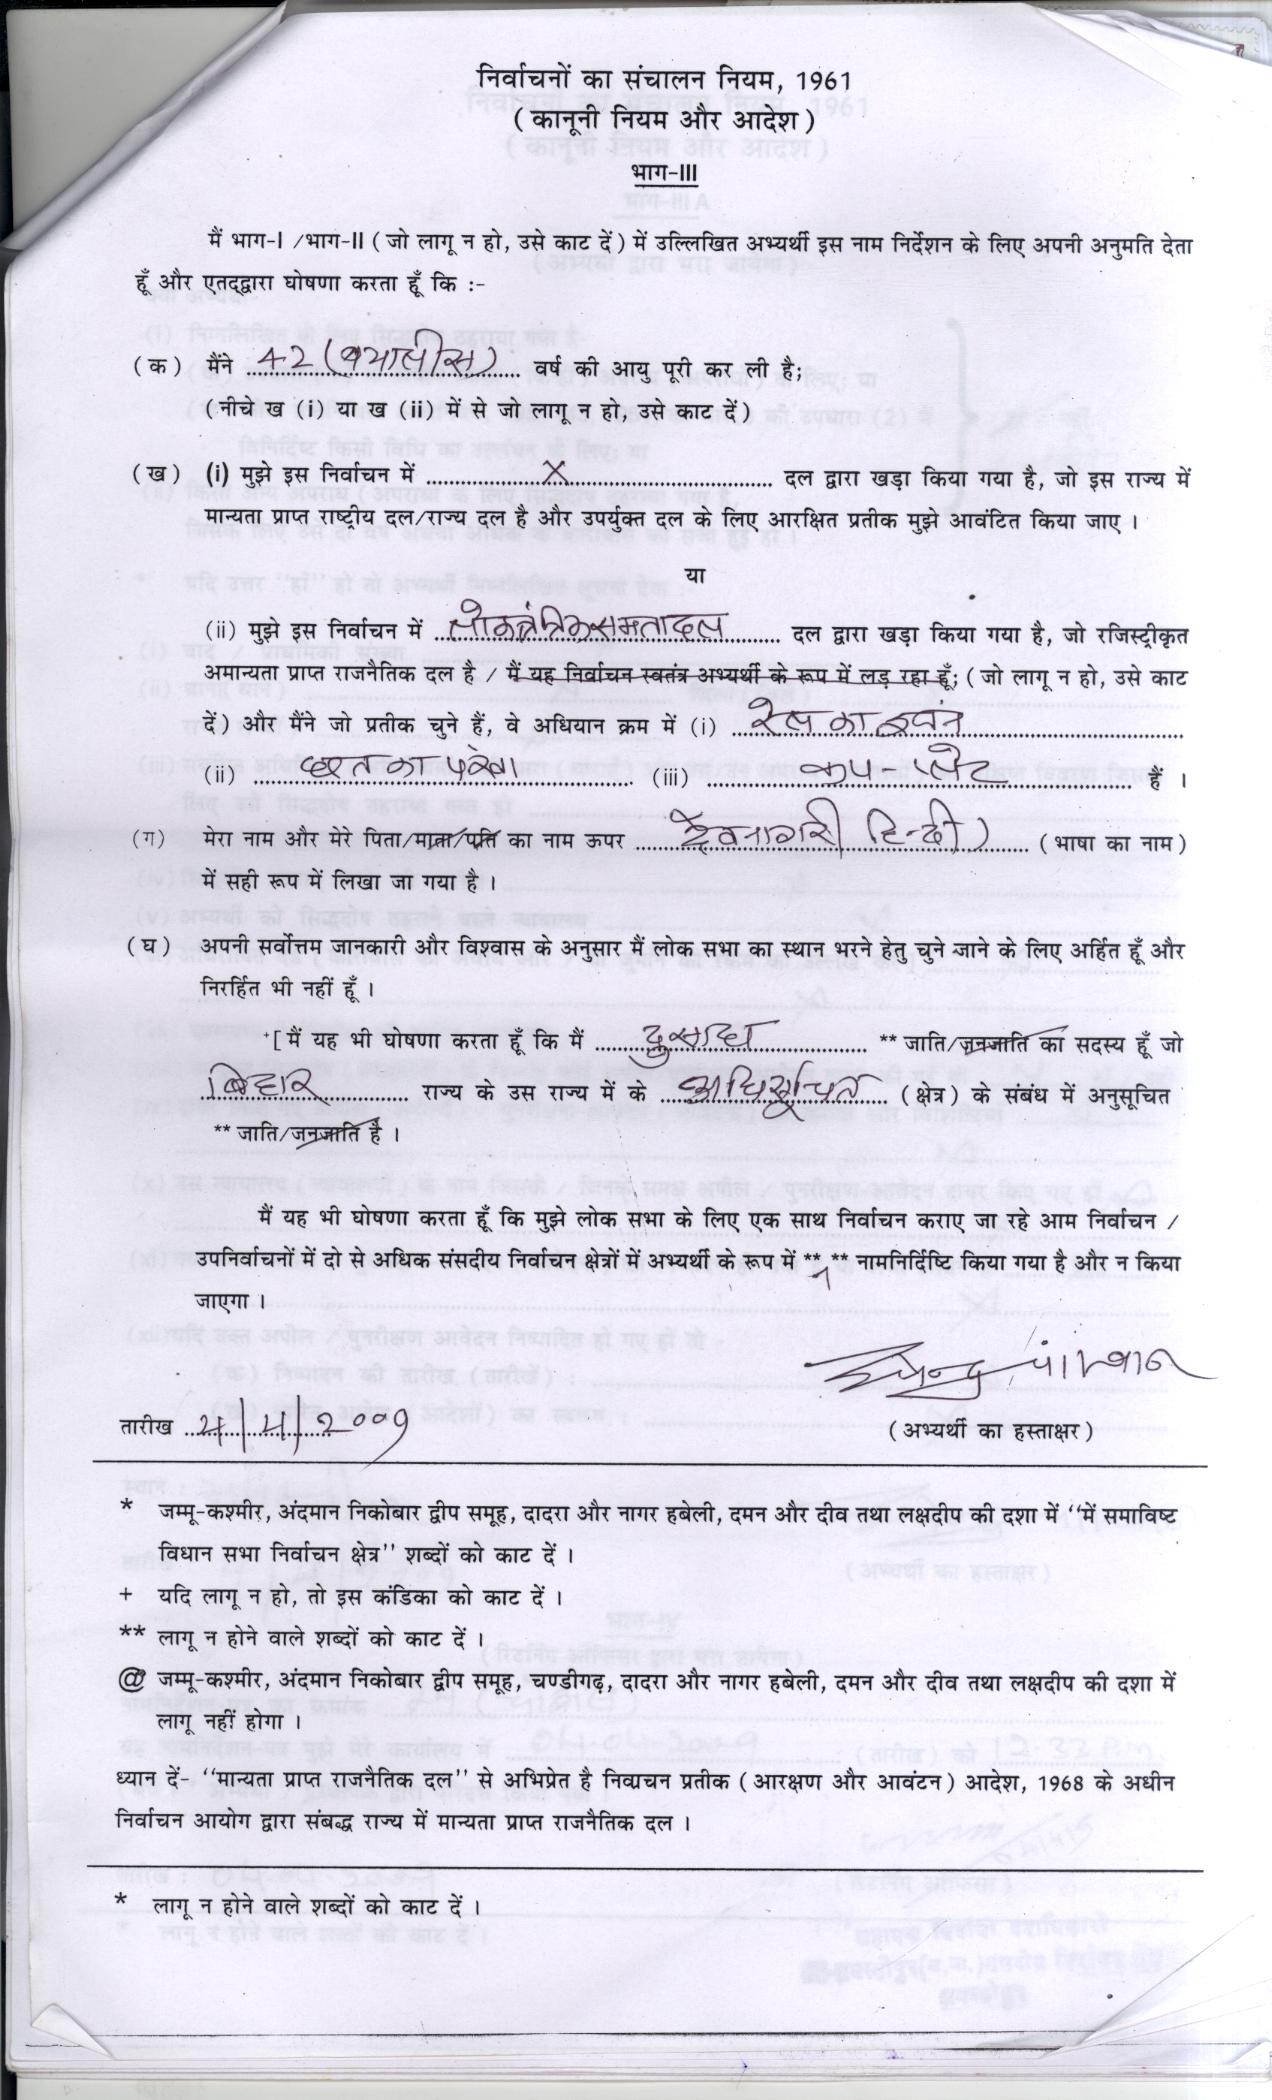 निर्वाचनों का संचालन नियम, 1961
( कानूनी नियम और आदेश )
भाग-III
मैं भाग-I /भाग-II ( जो लागू न हो, उसे काट दें ) में उल्लिखित अभ्यर्थी इस नाम निर्देशन के लिए अपनी अनुमति देता
हूँ और एतद्द्वारा घोषणा करता हूँ कि :-
( क ) मैंने 42 (बयालीस) वर्ष की आयु पूरी कर ली है;
( नीचे ख (i) या ख (ii) में से जो लागू न हो, उसे काट दें )
( ख ) (i) मुझे इस निर्वाचन में ........ X ........ दल द्वारा खड़ा किया गया है, जो इस राज्य में
मान्यता प्राप्त राष्ट्रीय दल/राज्य दल है और उपर्युक्त दल के लिए आरक्षित प्रतीक मुझे आवंटित किया जाए ।
या
(ii) मुझे इस निर्वाचन में लोकतंत्रिक समता दल दल द्वारा खड़ा किया गया है, जो रजिस्ट्रीकृत
अमान्यता प्राप्त राजनैतिक दल है / मैं यह निर्वाचन स्वतंत्र अभ्यर्थी के रूप में लड़ रहा हूँ; ( जो लागू न हो, उसे काट
दें ) और मैंने जो प्रतीक चुने हैं, वे अधियान क्रम में (i) रेल का इंजन
(ii) छत का पंखा (iii) कप प्लेट हैं ।
(ग) मेरा नाम और मेरे पिता/माता/पति का नाम ऊपर देवनागरी हिन्दी ) ( भाषा का नाम )
में सही रूप में लिखा जा गया है ।
( घ ) अपनी सर्वोत्तम जानकारी और विश्वास के अनुसार मैं लोक सभा का स्थान भरने हेतु चुने जाने के लिए अर्हित हूँ और
निरर्हित भी नहीं हूँ ।
+[ मैं यह भी घोषणा करता हूँ कि मैं दुसाध ** जाति/जनजाति का सदस्य हूँ जो
बिहार राज्य के उस राज्य में के अधिसूचित ( क्षेत्र ) के संबंध में अनुसूचित
** जाति/जनजाति है ।
मैं यह भी घोषणा करता हूँ कि मुझे लोक सभा के लिए एक साथ निर्वाचन कराए जा रहे आम निर्वाचन /
उपनिर्वाचनों में दो से अधिक संसदीय निर्वाचन क्षेत्रों में अभ्यर्थी के रूप में ** न ** नामनिर्दिष्टि किया गया है और न किया
जाएगा ।
तारीख 4/4/2009
( अभ्यर्थी का हस्ताक्षर )
* जम्मू-कश्मीर, अंदमान निकोबार द्वीप समूह, दादरा और नागर हबेली, दमन और दीव तथा लक्षदीप की दशा में ''में समाविष्ट
विधान सभा निर्वाचन क्षेत्र'' शब्दों को काट दें ।
+ यदि लागू न हो, तो इस कंडिका को काट दें ।
** लागू न होने वाले शब्दों को काट दें ।
@ जम्मू-कश्मीर, अंदमान निकोबार द्वीप समूह, चण्डीगढ़, दादरा और नागर हबेली, दमन और दीव तथा लक्षदीप की दशा में
लागू नहीं होगा ।
ध्यान दें- ''मान्यता प्राप्त राजनैतिक दल'' से अभिप्रेत है निवाचन प्रतीक ( आरक्षण और आवंटन ) आदेश, 1968 के अधीन
निर्वाचन आयोग द्वारा संबद्ध राज्य में मान्यता प्राप्त राजनैतिक दल ।
* लागू न होने वाले शब्दों को काट दें ।